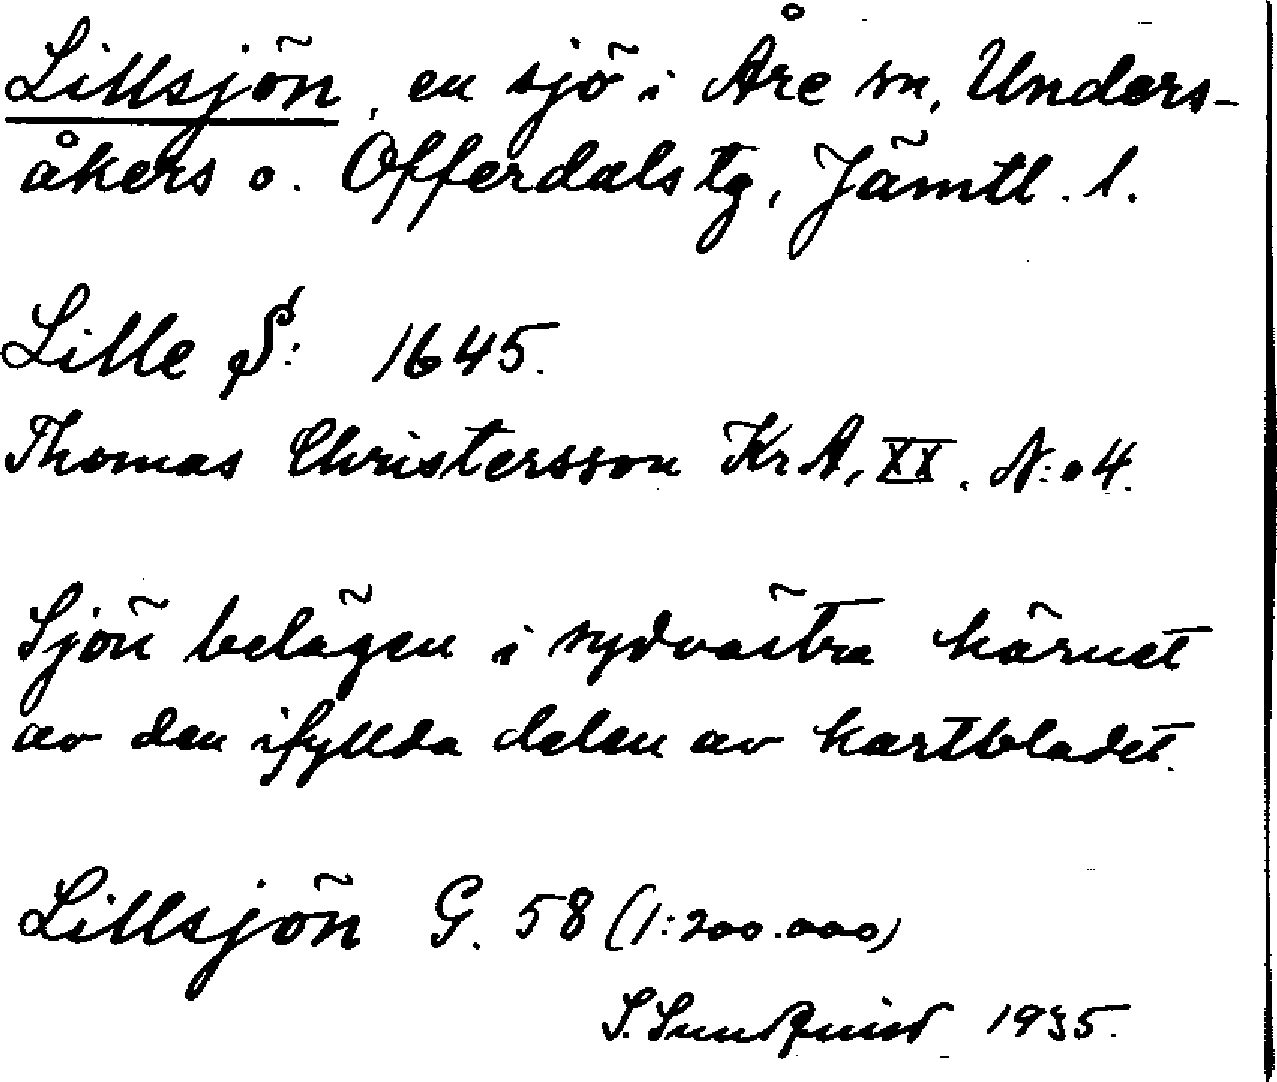 Lillsjön, en sjö i Åre sn, Unders-
åkers o. Offerdals tg, Jämtl. l.
Lille S: 1645.
Thomas Christersson KrA, XX. N:o 4.
Sjön belägen i sydvästra hörnet
av den ifyllda delen av kartbladet.
Lillsjön G. 58 (1:200.000)
S. Sundquist 1935.